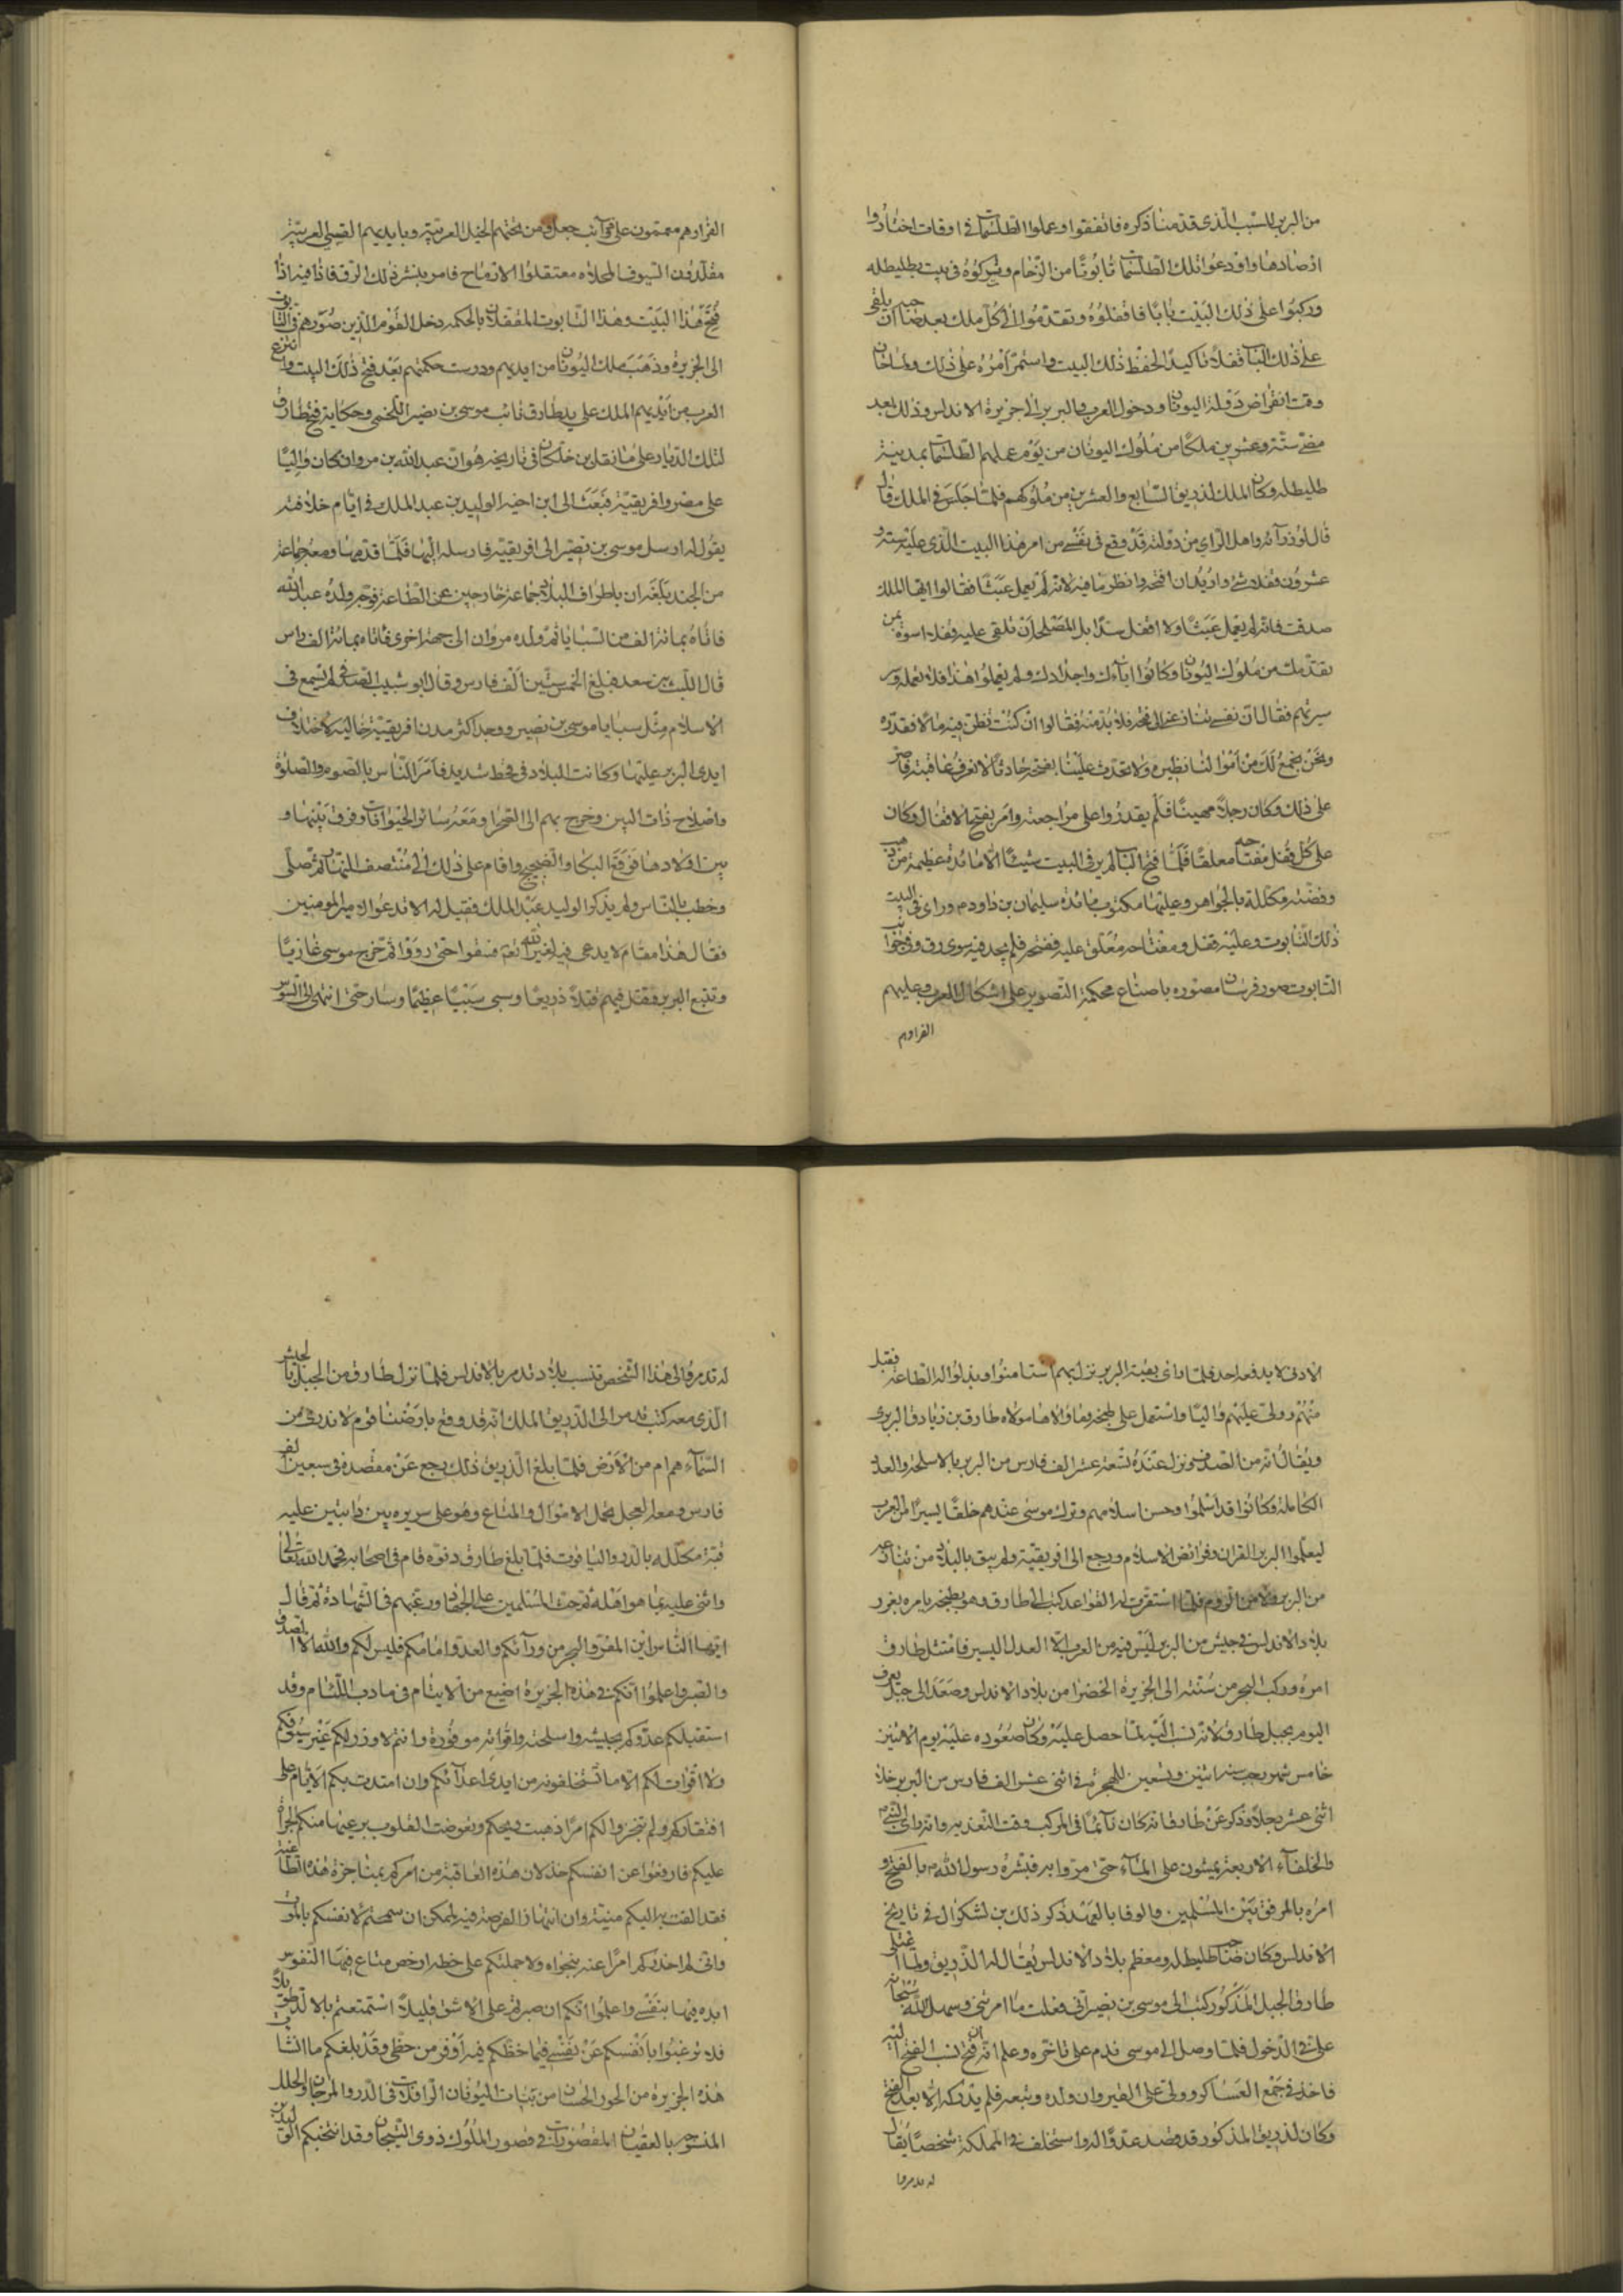 من البربر للسبب الذى قدمنا ذكره فاتفقوا وعملوا الطلسمات فى اوقات اختاروا
ارصادها واودعوا تلك الطلسمات تابوتا من الرخام وتركوه فى بيت بطليطله
وركبوا على ذلك البيت بابا فاقفلوه وتقدموا الى كل ملك بعد صاحبه ان يلقى
على ذلك الباب قفلا تاكيدا لحفظ ذلك البيت واستمر امره على ذلك ولما حان
وقت انقراض دولة اليونان ودخول العرب والبربر الى جزيرة الاندلس وذلك بعد
مضى ستة وعشرين ملكا من ملوك اليونان من يوم عملهم الطلسمات بمدينة
طليطله وكان الملك لذريق السابع والعشرين من ملوكهم فلما جلس فى الملك قال
قال لوزرآئه واهل الراي من دولته قد وقع فى نفسى من امر هذا البيت الذى عليه ستة و
عشرون قفلا شئ واريد ان افتحه وانظر ما فيه لانه لم يعمل عبثا فقالوا ايها الملك
صدقت فانه لم يعمل عبثا ولا اقفل سدا بل المصلحة ان تلقى عليه قفلا اسوة بمن
تقدمك من ملوك اليونان وكانوا آباءك واجدادك ولم يهملوا هذا فلا تهمله وسر
سيرتهم فقال ان نفسى تنازعنى الى فتحه فلا بد منه فقالوا ان كنت تظن فيه مالا فقدره
ونحن نجمع لك من اموالنا نظيره ولا تحدث علينا بفتحه حادثا لا نعرف عاقبته فاصر
على ذلك وكان رجلا مهيبا فلم يقدروا على مراجعته وامر بفتح الاقفال وكان
على كل قفل مفتاحه معلقا فلما فتح الباب لم ير فى البيت شيئا الا مائدة عظيمة من ذهب
وفضة مكللة بالجواهر وعليها مكتوب مائدة سليمان بن داود م وراى فى البيت
ذلك التابوت وعليه قفل ومفتاحه معلق عليه ففتحه فلم يجد فيه سوى رق وفى جوانب
التابوت صور فرسان مصوره باصباغ محكمة التصوير على اشكال العرب وعليهم
الفراوهم
الفراوهم معممون على ذوآئب جعل ومن تحتهم الخيل العربية وبايديهم القسى العربية
مقلدون السيوف المحلاه معتقلوا الارماح فامر بنشر ذلك الرق فاذا فيه اذا
فتح هذا البيت وهذا التابوت المقفلان بالحكمه دخل القوم الذين صورهم فى التابوت
الى الجزيره وذهب ملك اليونان من ايديهم ودرست حكمتهم بعد فتح ذلك البيت وانتزع
العرب من ايديهم الملك على يد طارق نائب موسى بن نصير اللخمى وحكاية فتح طارق
لتلك الديار على ما نقل بن خلكان فى تاريخه هو ان عبد الله بن مروان كان واليا
على مصر وافريقية فبعث الى ابن اخيه الوليد بن عبد الملك فى ايام خلافته
يقول له ارسل موسى بن نصير الى افريقيه فارسله اليها فلما قدمها ومعه جماعة
من الجند بلغه ان باطراف البلاد جماعة خارجين عن الطاعة فوجه ولده عبد الله
فاتاه بمائة الف من السبايا ثم ولده مروان الى جهة اخرى فاتاه بمائة الف راس
قال الليث بن سعد فبلغ الخمس ستين الف فارس وقال ابو شبيب الصافى لم تسمع فى
الاسلام مثل سبايا موسى بن نصير ووجد اكثر مدن افريقية خالية لاختلاف
ايدى البربر عليها وكانت البلاد فى قحط شديد فامر الناس بالصوم والصلوة
واصلاح ذات البين وخرج بهم الى الصحرا ومعه سائر الحيوانات وفرق بينها و
بين اولادها فوقع البكا والضجيج واقام على ذلك الى منتصف النهار ثم صلى
وخطب بالناس ولم يذكر الوليد عبد الملك فقيل له الا تدعوا لامير المومنين
فقال هذا مقام لا يدعى فيه لغير الله تعه فسقوا حتى رووا ثم خرج موسى غازيا
وتتبع البربر فقتل فيهم قتلا ذريعا وسبى سبيا عظيما وسار حتى انتهى الى السوس
الادنى لا يدفعه احد فلما راى بقية البربر نزل بهم استامنوا وبذلوا له الطاعة فقبل
منهم وولى عليهم واليا واستعمل على طنجه ومآ والاها مولاه طارق بن زياد البربرى
ويقال انه من الصدف ونزل عنده تسعة عشر الف فارس من البربر بالاسلحة والعدد
الكاملة وكانوا قد اسلموا وحسن اسلامهم وترك موسى عندهم خلقا يسيرا من العرب
ليعلموا البربر القران وفرائض الاسلام ورجع الى افريقية ولم يبق بالبلاد من ينازعه
من البربر ولا من الروم فلما استقرت له القواعد كتب الى طارق وهو بطنجه يامره بغزو
بلاد الاندلس فى جيش من البربر ليس فيه من العرب الا العدد اليسير فامتثل طارق
امره وركب البحر من سبته الى الجزيرة الخضرا من بلاد الاندلس وصعد الى جبل يعرف
اليوم بجبل طارق لانه نسب اليه لما حصل عليه وكان صعوده عليه يوم الاثنين
خامس شهر رجب سنة اثنين وتسعين للهجرة فى اثنى عشر الف فارس من البربر خلا
اثنى عشر رجلا وذكر عن طارق انه كان نآئما فى المركب وقت التعديه وانه راى النبى م
والخلفآء الاربعة يمشون على المآء حتى مروا به فبشره رسول الله م بالفتح و
امره بالرفق بين المسلمين والوفا بالعهد ذكر ذلك بن لشكوال فى تاريخ
الاندلس وكان صاحب طليطله ومعظم بلاد الاندلس يقال له الذريق ولما اعتلى
طارق الجبل المذكور كتب الى موسى بن نصير انى فعلت ما امرتنى وسهل الله سبحانه
على فى الدخول فلما وصل الى موسى ندم على تاخره وعلم انه ان فتح نسب الفتح اليه
فاخذ فى جمع العساكر وولى على القيروان ولده وتبعه فلم يدركه الا بعد الفتح
وكان لذريق المذكور قد قصد عدوا له واستخلف فى المملكة شخصا يقال
له تدمروا
له تدمر والى هذا الشخص تنسب بلاد تدمر بالاندلس فلما نزل طارق من الجبل بالجيش
الذى معه كتب تدمر الى الذريق الملك انه قد وقع بارضنا قوم لا ندرى من
السمآء هم ام من الارض فلما بلغ الذريق ذلك رجع عن مقصده فى سبعين الف
فارس ومعه العجل يحمل الاموال والمتاع وهو على سريره بين دابتين عليه
قبة مكلله بالدر والياقوت فلما بلغ طارق دنوه قام فى اصحابه فحمد الله تعالى
واثنى عليه بما هو اهله ثم حث المسلمين على الجهاد ورغبهم فى الشهادة ثم قال
ايها الناس اين المفر والبحر من ورآئكم والعدو امامكم فليس لكم والله الا الصدق
والصبر واعلموا انكم فى هذه الجزيرة اضيع من الايتام فى مادب اللئام وقد
استقبلكم عدوكم بجيشه واسلحته واقواته موفورة وانتم لا وزر لكم غير سيوفكم
ولا اقوات لكم الا ما تستخلصونه من ايدى اعدآئكم وان امتدت بكم الايام على
افتقاركم ولم تنجزوا لكم امرا ذهبت ريحكم وتعوضت القلوب برعبها منكم الجراة
عليكم فادفعوا عن انفسكم خذلان هذه العاقبة من امركم بمناجزة هذه الطاغية
فقد القت به اليكم منيته وان انتهاز الفرصة فيه لممكن ان سمحتم لانفسكم بالموت
وانى لم احذركم امرا عنه بنجواه ولا حملتكم على خطه ارخص متاع فيها النفوس
ابدء فيها بنفسى واعلموا انكم ان صبرتم على الاشق قليلا استمتعتم بالالذ طويلا
فلا ترغبوا بانفسكم عن نفسى فما حظكم فيه اوفر من حظى وقد بلغكم ما انشات
هذه الجزيرة من الحور الحسان من بنات اليونان الرافلات فى الدر والمرجان والحلل
المنسوجه بالعقيان المقصورات فى قصور الملوك ذوى التيجان وقد انتخبكم الوليد بن